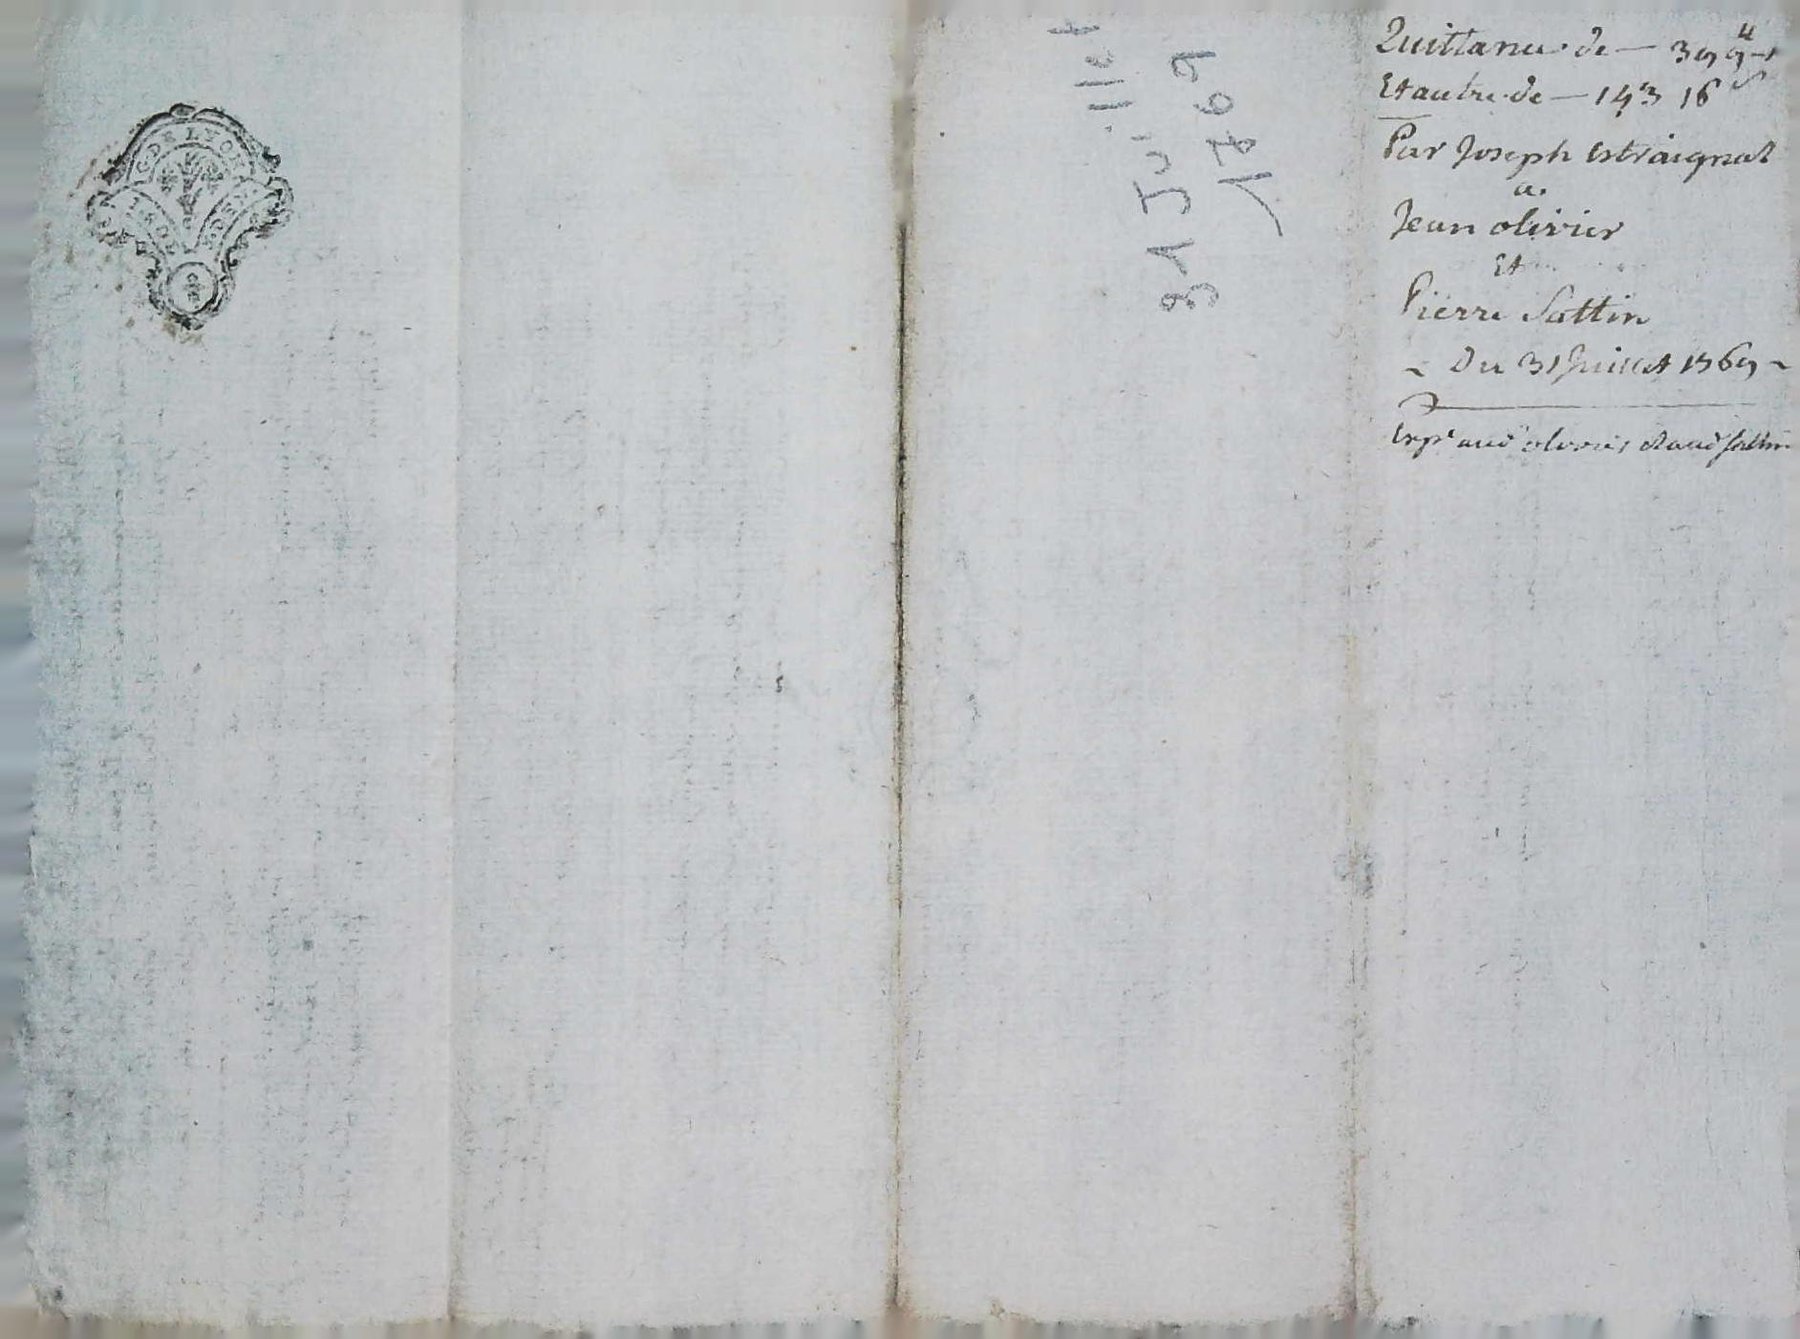 G. DE LYON
31 Juillet
1769
Quittance de — 399 ₶
Et autre de — 143 16 s
Par Joseph Estraignat
a.
Jean olivier
Et
Pierre Sattin
~ Du 31 Juillet 1769 ~
Exp. aud olivier & aud Sattin